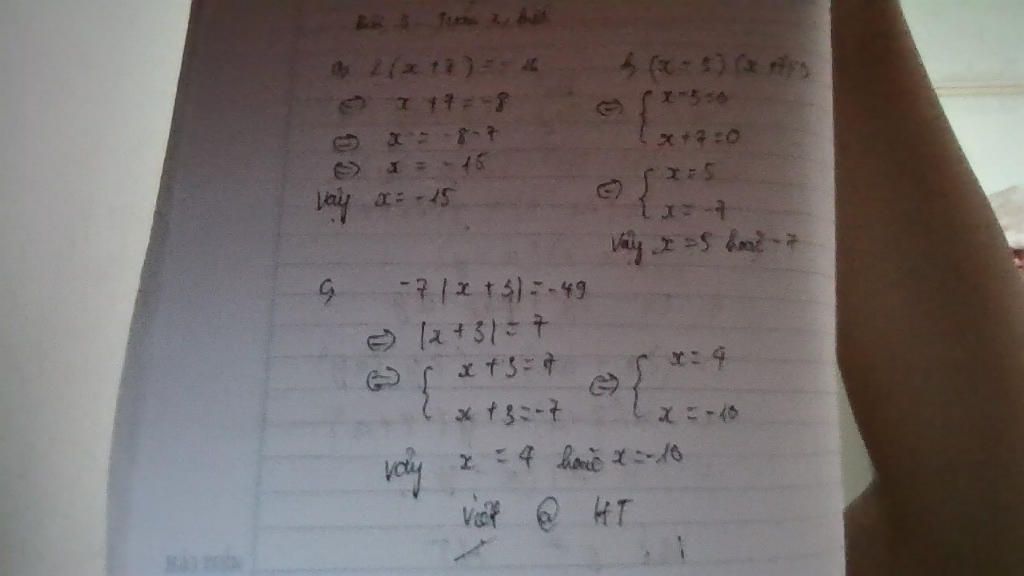 Bài 3
a, 2(x+7)=-16
⇔ x+7=-8
⇔ x=-8-7
⇔ x=-15
Vậy x=-15
b, (x-5)(x+7)=0
⇔ { x-5=0
x+7=0
⇔ { x=5
x=-7
Vậy x=5 hoặc -7
c, -7|x+3|=-49
⇔ |x+3|=7
⇔ { x+3=7 ⇔ { x=4
x+3=-7 x=-10
Vậy x=4 hoặc x=-10
@ HT